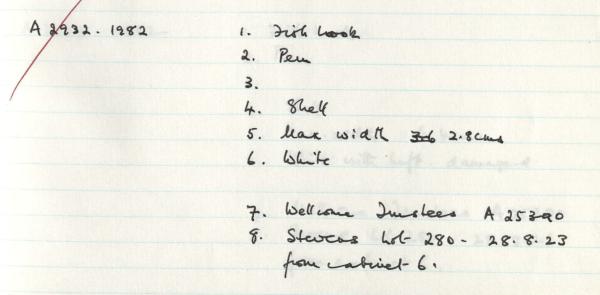 A 2932. 1982
1. Fish hook
2. Peru
3.
4. Shell
5. Max width 3.6 2.8cms
6. White
7. Wellcome Trustees A 25390
8. Stevens Lot 280 - 28.8.23
from cabinet 6.